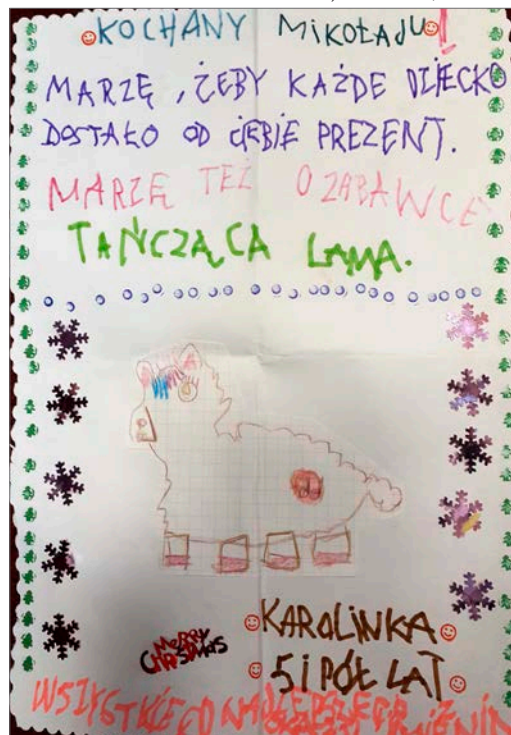 KOCHANY MIKOŁAJU!
MARZĘ, ŻEBY KAŻDE DZIECKO
DOSTAŁO OD CIEBIE PREZENT.
MARZĘ TEŻ O ZABAWCE
TAŃCZĄCA LAMA.
MERRY
CHRISTMAS
KAROLINKA
5 I PÓŁ LAT